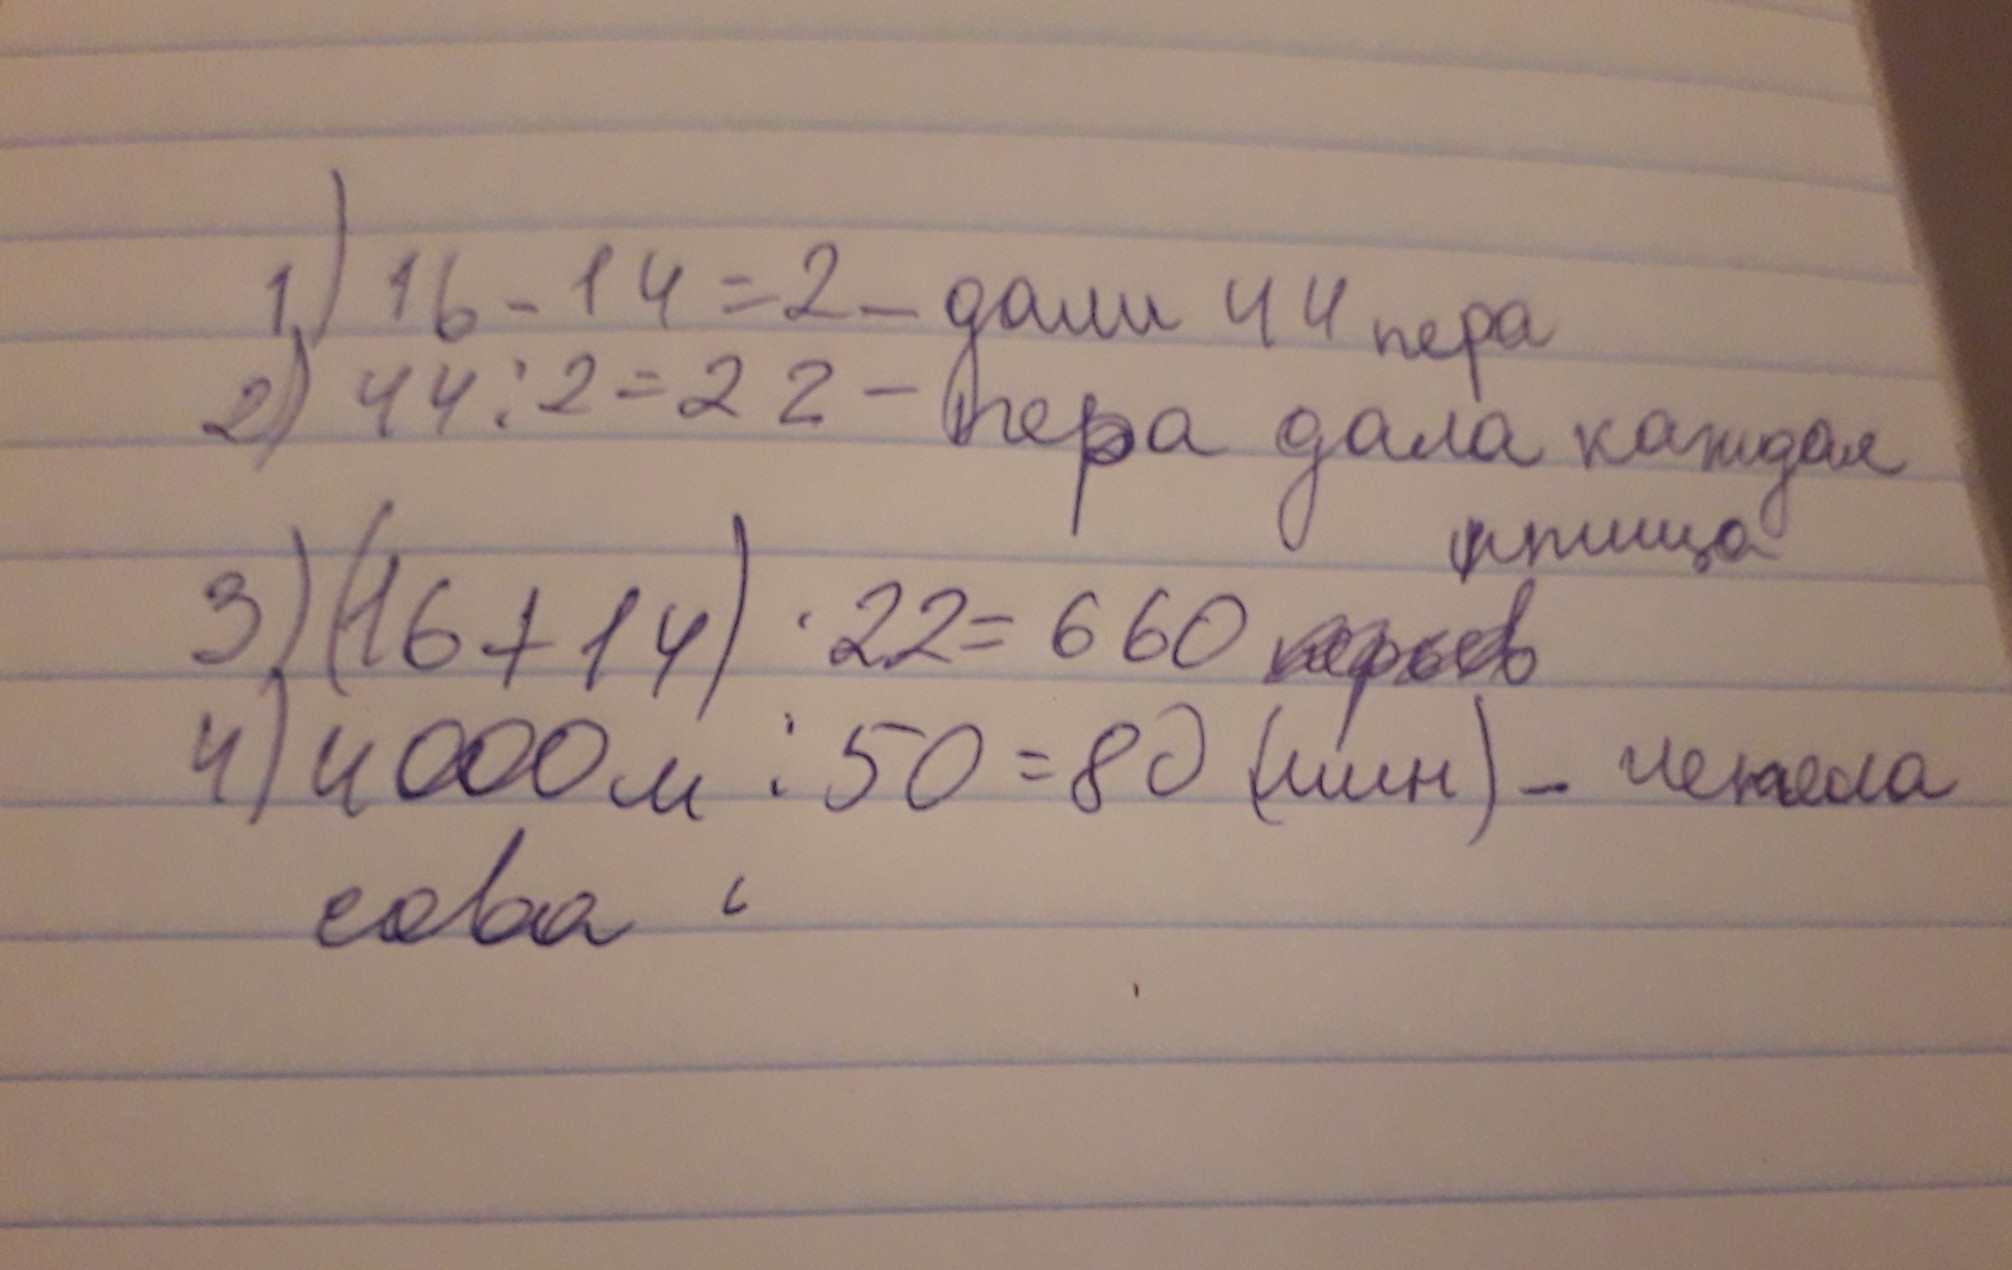 1) 16 - 14 = 2 - дали 44 пера
2) 44 : 2 = 22 - пера дала каждая
птица
3) (16 + 14) · 22 = 660 перьев
4) 4000 м : 50 = 80 (мин) -
сова